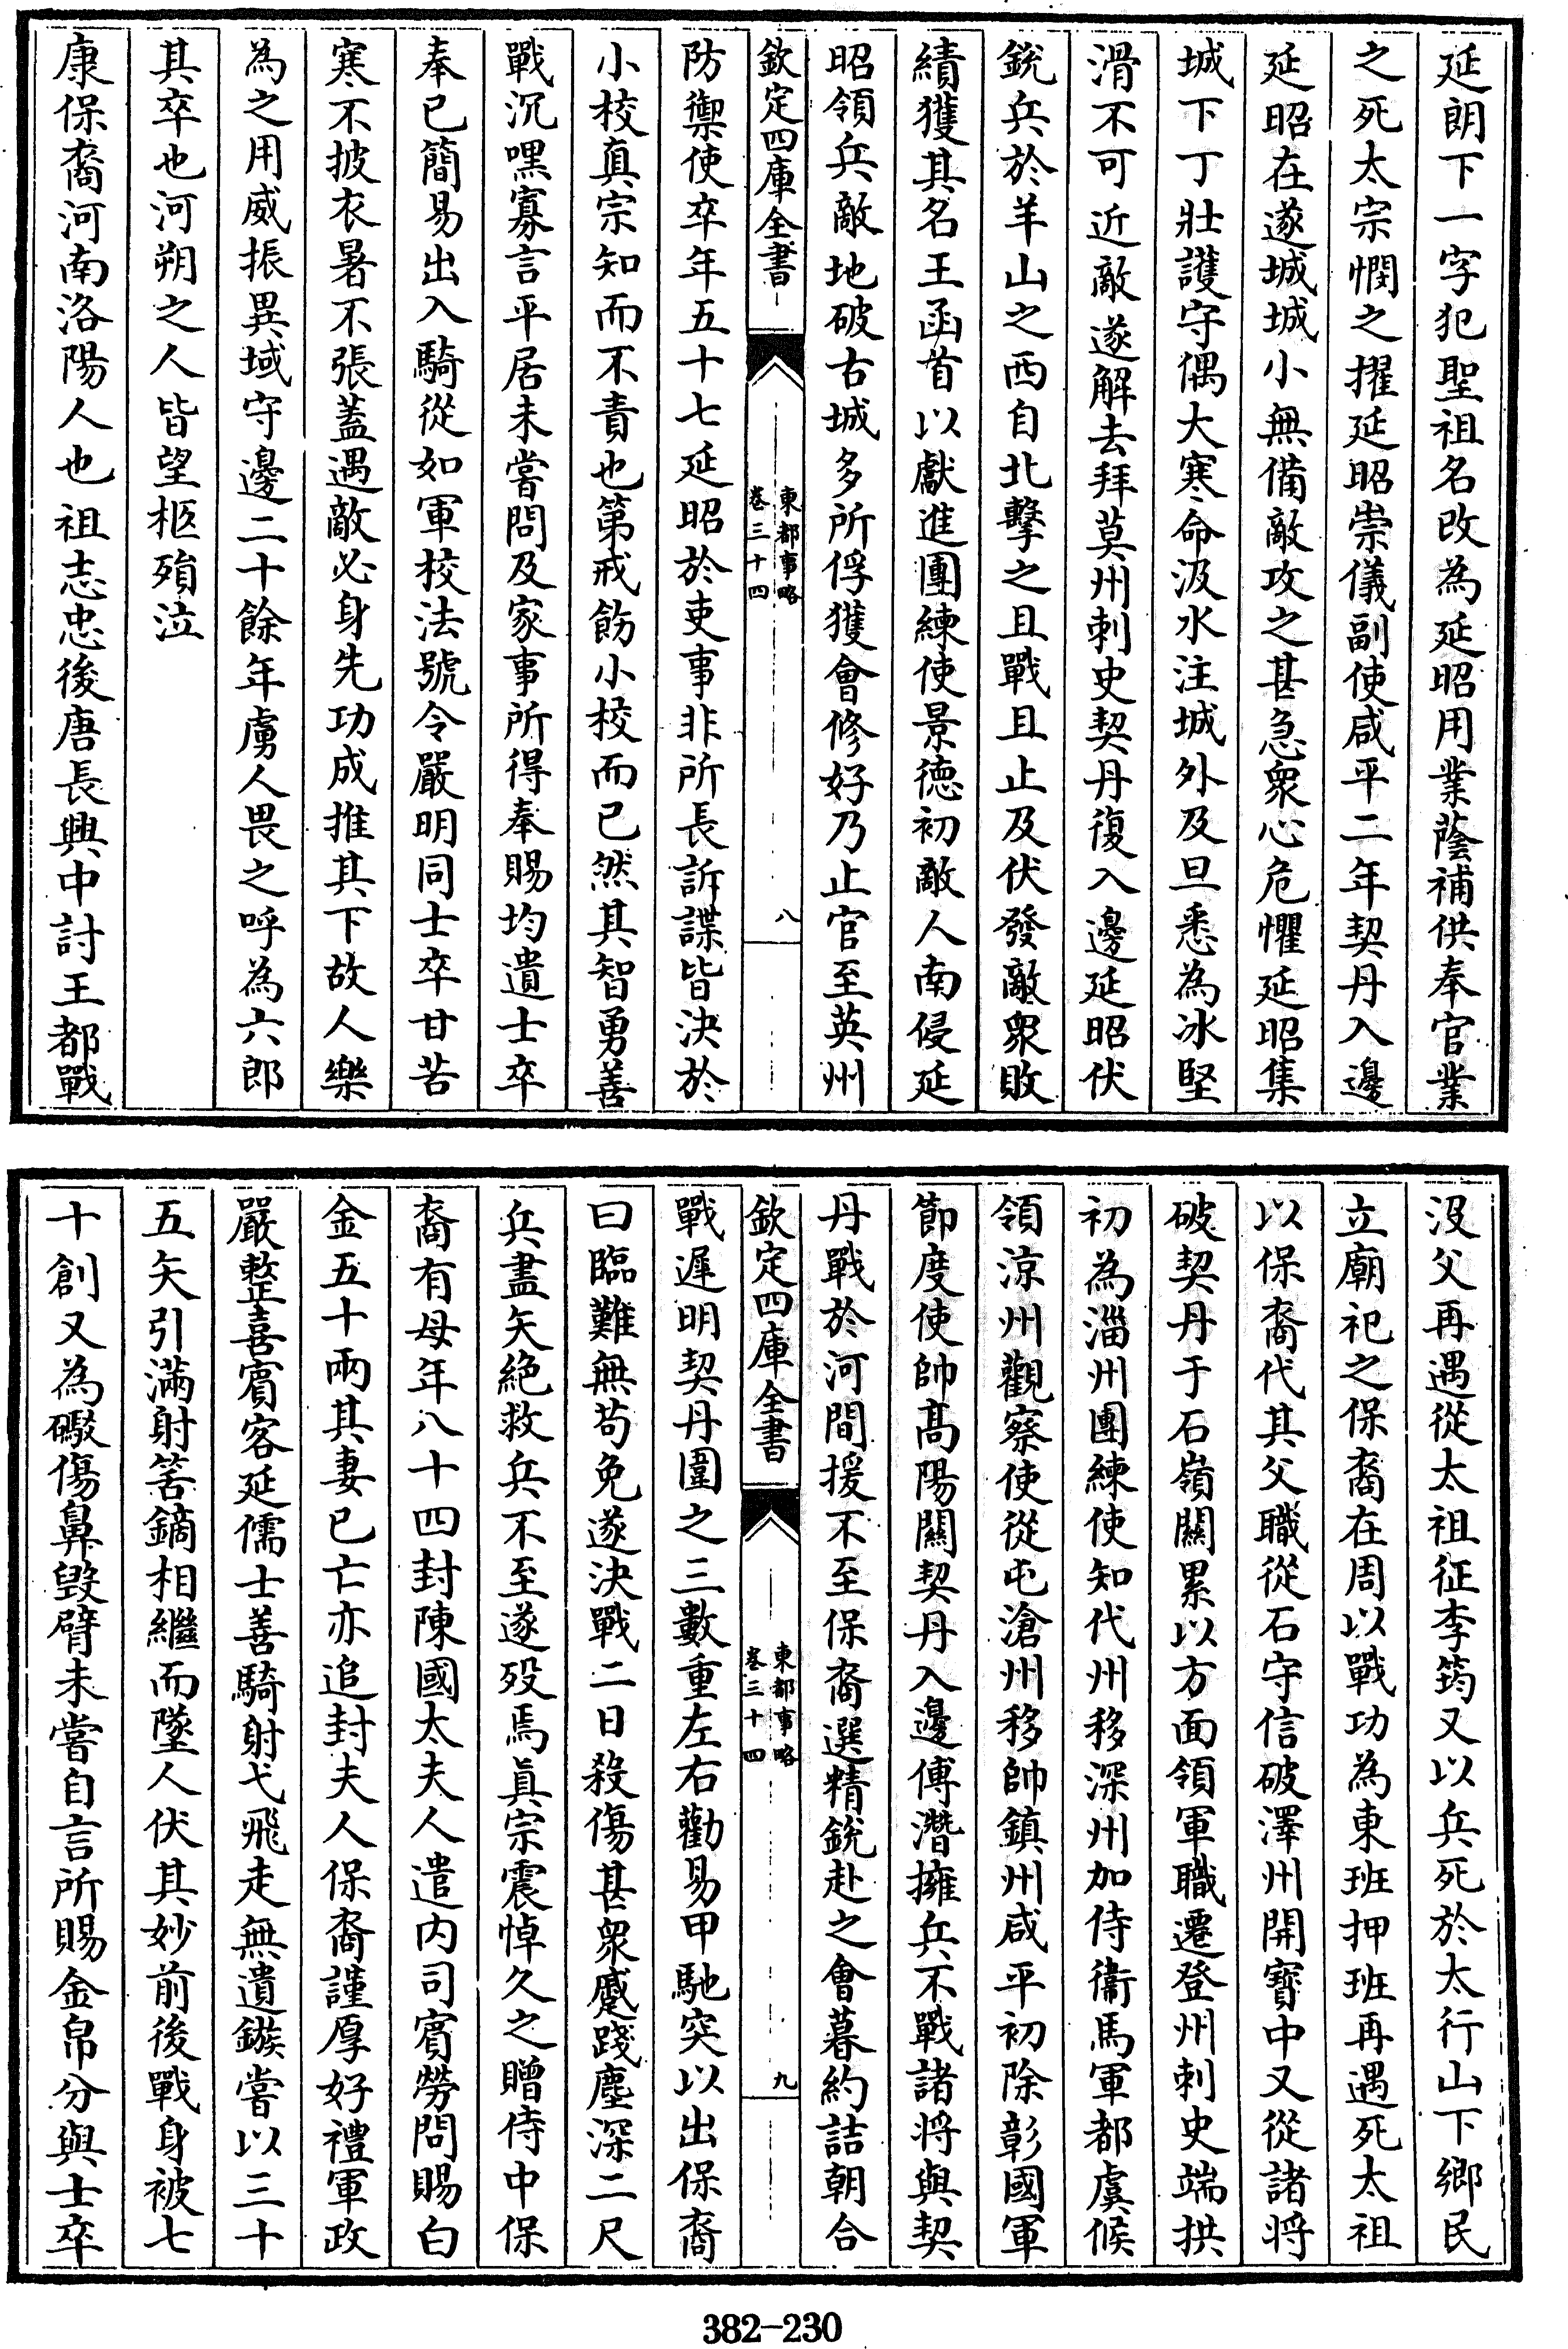 延朗下一字犯聖祖名改為延昭用業蔭補供奉官業
之死太宗憫之擢延昭崇儀副使咸平二年契丹入邊
延昭在遂城城小無備敵攻之甚急衆心危懼延昭集
城下丁壯護守偶大寒命汲水注城外及旦悉為冰堅
滑不可近敵遂解去拜莫州刺史契丹復入邊延昭伏
銳兵於羊山之西自北擊之且戰且止及伏發敵衆敗
績獲其名王函首以獻進團練使景德初敵人南侵延
昭領兵敵地破古城多所俘獲會修好乃止官至英州
欽定四庫全書
東都事略
卷三十四
八
防禦使卒年五十七延昭於吏事非所長訴諜皆決於
小校真宗知而不責也第戒飭小校而已然其智勇善
戰沉嘿寡言平居未嘗問及家事所得奉賜均遺士卒
奉已簡易出入騎從如軍校法號令嚴明同士卒甘苦
寒不披衣暑不張蓋遇敵必身先功成推其下故人樂
為之用威振異域守邊二十餘年虜人畏之呼為六郎
其卒也河朔之人皆望柩殞泣
康保裔河南洛陽人也祖志忠後唐長興中討王都戰
沒父再遇從太祖征李筠又以兵死於太行山下鄉民
立廟祀之保裔在周以戰功為東班押班再遇死太祖
以保裔代其父職從石守信破澤州開寶中又從諸將
破契丹于石嶺關累以方面領軍職遷登州刺史端拱
初為淄州團練使知代州移深州加侍衞馬軍都虞候
領涼州觀察使從屯滄州移帥鎮州咸平初除彰國軍
節度使帥髙陽關契丹入邊傅潛擁兵不戰諸將與契
丹戰於河間援不至保裔選精銳赴之會暮約詰朝合
欽定四庫全書
東都事略
卷三十四
九
戰遲明契丹圍之三數重左右勸易甲馳突以出保裔
曰臨難無茍免遂決戰二日殺傷甚衆蹙踐塵深二尺
兵盡矢絕救兵不至遂歿焉真宗震悼久之贈侍中保
裔有母年八十四封陳國太夫人遣内司賓勞問賜白
金五十兩其妻已亡亦追封夫人保裔謹厚好禮軍政
嚴整喜賓客延儒士善騎射弋飛走無遺鏃嘗以三十
五矢引滿射筈鏑相繼而墜人伏其妙前後戰身被七
十創又為礮傷鼻毀臂未嘗自言所賜金帛分與士卒
382-230